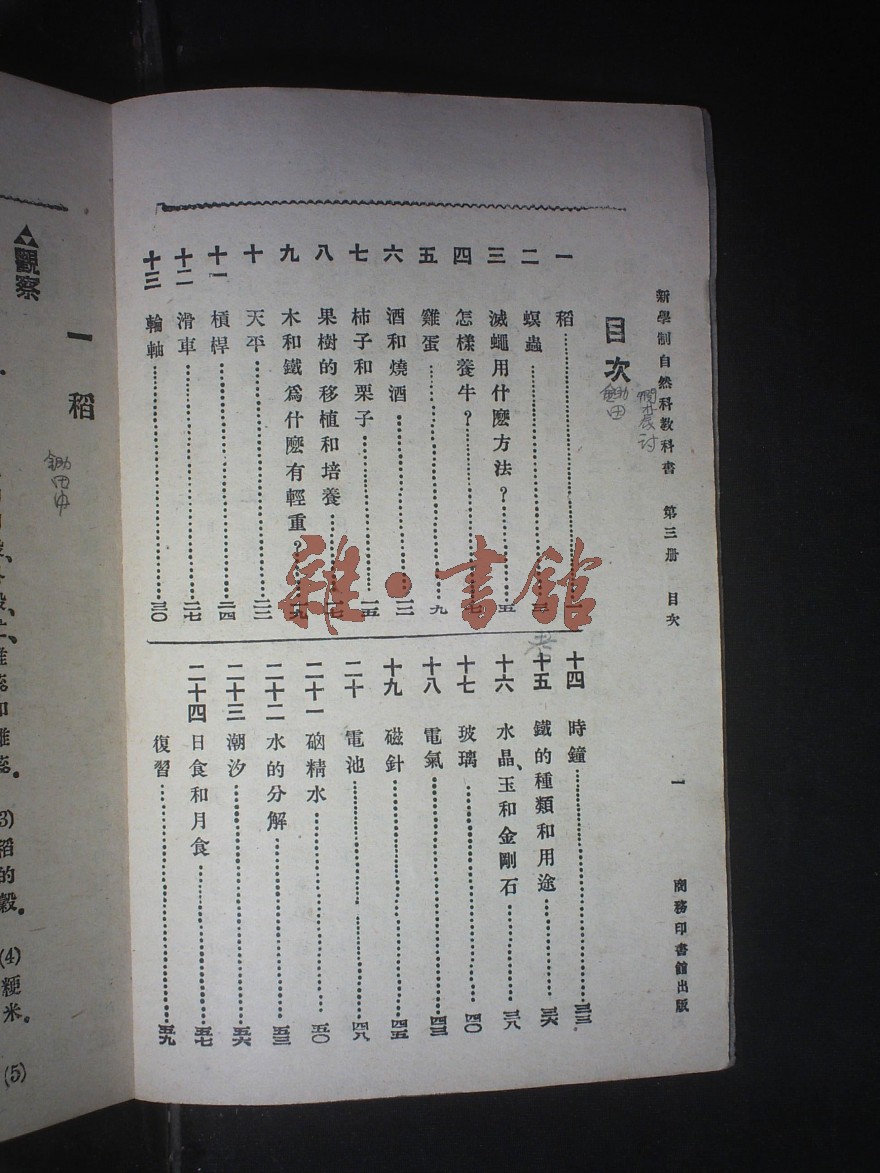 新學制自然科教科書　第三册　目次　一　商務印書館出版
目次
一　稻
二　螟蟲　三
三　滅蠅用什麽方法？　五
四　怎樣養牛？　七
五　雞蛋　九
六　酒和燒酒　一二
七　柿子和栗子　一五
八　果樹的移植和培養　一七
九　木和鐵爲什麽有輕重？　一九
十　天平　二二
十一　槓桿　二四
十二　滑車　二七
十三　輪軸　三〇
十四　時鐘　三三
十五　鐵的種類和用途　三六
十六　水晶、玉和金剛石　三八
十七　玻璃　四〇
十八　電氣　四三
十九　磁針　四五
二十　電池　四八
二十一　硇精水　五〇
二十二　水的分解　五三
二十三　潮汐　五六
二十四　日食和月食　五七
復習　五九
雜·書館
鋤田
一　稻
觀察
(3)稻的穀。
(4)粳米。
(5)